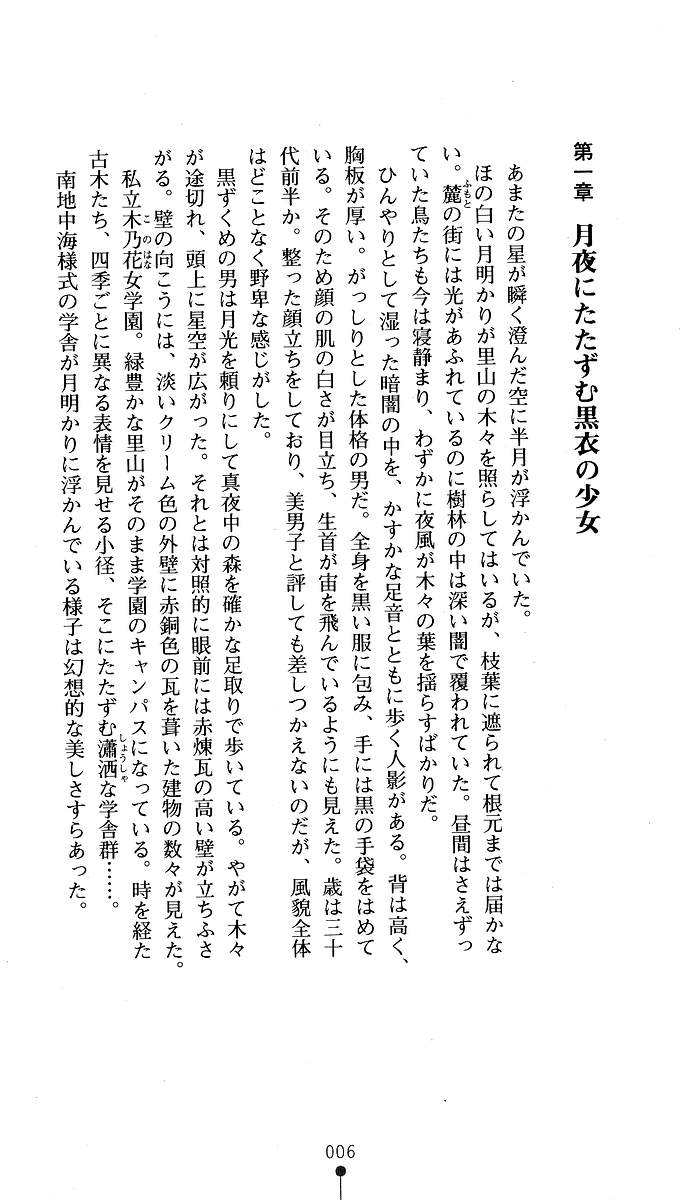 第一章　月夜にたたずむ黒衣の少女
あまたの星が瞬く澄んだ空に半月が浮かんでいた。
ほの白い月明かりが里山の木々を照らしてはいるが、枝葉に遮られて根元までは届かな
い。麓の街には光があふれているのに樹林の中は深い闇で覆われていた。昼間はさえずっ
ふもと
ていた鳥たちも今は寝静まり、わずかに夜風が木々の葉を揺らすばかりだ。
ひんやりとして湿った暗闇の中を、かすかな足音とともに歩く人影がある。背は高く、
胸板が厚い。がっしりとした体格の男だ。全身を黒い服に包み、手には黒の手袋をはめて
いる。そのため顔の肌の白さが目立ち、生首が宙を飛んでいるようにも見えた。歳は三十
代前半か。整った顔立ちをしており、美男子と評しても差しつかえないのだが、風貌全体
はどことなく野卑な感じがした。
黒ずくめの男は月光を頼りにして真夜中の森を確かな足取りで歩いている。やがて木々
が途切れ、頭上に星空が広がった。それとは対照的に眼前には赤煉瓦の高い壁が立ちふさ
がる。壁の向こうには、淡いクリーム色の外壁に赤銅色の瓦を葺いた建物の数々が見えた。
私立木乃花女学園。緑豊かな里山がそのまま学園のキャンパスになっている。時を経た
このはな
古木たち、四季ごとに異なる表情を見せる小径、そこにたたずむ瀟洒な学舎群……。
しょうしゃ
南地中海様式の学舎が月明かりに浮かんでいる様子は幻想的な美しさすらあった。
006